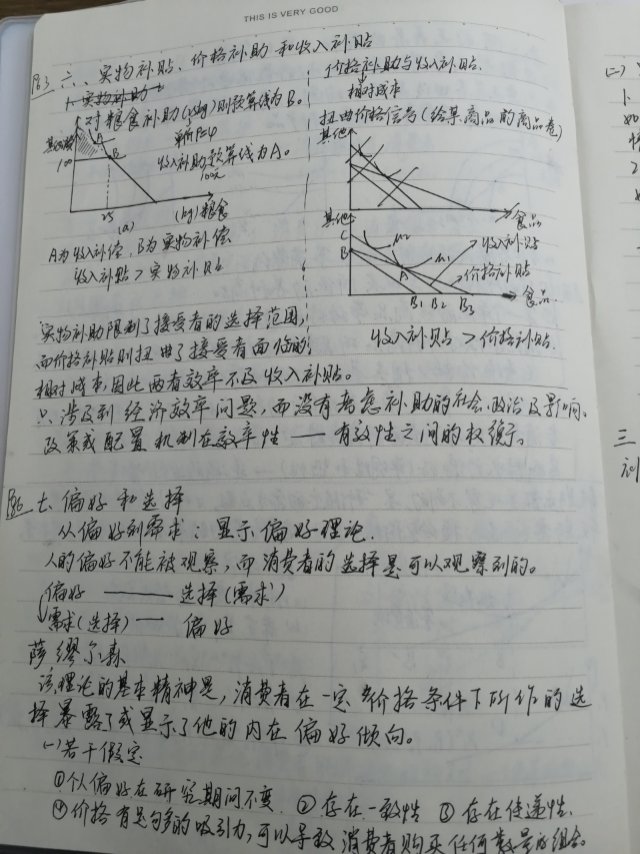 THIS IS VERY GOOD
P83 六、实物补贴、价格补助 和收入补贴
1. 实物补助
对粮食补助(25kg)则预算线为B。
单价P=4
收入补助预算线为A。
100元
其他
100
A
B
25
(kg)粮食
(a)
A为收入补偿,B为实物补偿
收入补贴>实物补贴
价格补助与收入补贴.
相对成本
扭曲价格信号(给某商品的商品卷)
其他
食品
其他
C
B
A
u2
u1
收入补贴
价格补贴
B1 B2 B3
食品
收入补贴>价格补贴.
实物补助限制了接受者的选择范围,
而价格补贴则扭曲了接受者面临的
相对成本,因此两者效率不及收入补贴。
只涉及到经济效率问题,而没有考虑补助的社会、政治及影响、
政策或配置机制在效率性——有效性之间的权衡。
P86 七、偏好和选择
从偏好到需求:显示偏好理论.
人的偏好不能被观察,而消费者的选择是可以观察到的。
偏好——选择(需求)
需求(选择)—偏好
萨缪尔森
该理论的基本精神是,消费者在一定价格条件下所作的选
择暴露了或显示了他的内在偏好倾向。
(一)若干假定
①个人偏好在研究期间不变. ②存在一致性 ③存在传递性.
④价格有足够多的吸引力,可以导致消费者购买任何数量的组合。
(二)
1
如
2
三